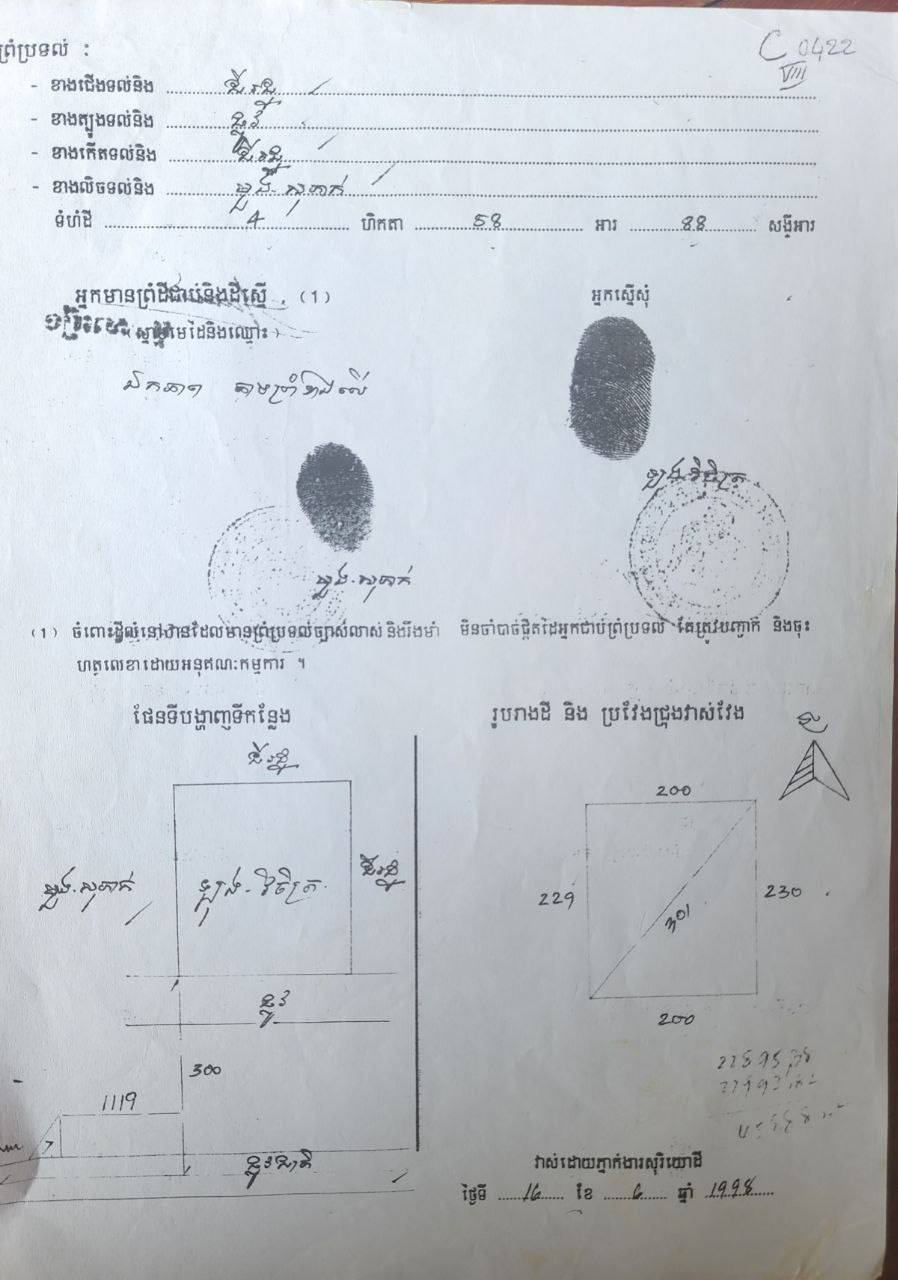 ព្រំប្រទល់ :
C 0422
VIII
- ខាងជើងទល់និង ដីរដ្ឋ
- ខាងត្បូងទល់និង ផ្លូវ
- ខាងកើតទល់និង ដីរដ្ឋ
- ខាងលិចទល់និង
ទំហំដី 4 ហិកតា 58 អារ 88 សង់ទីអារ
អ្នកមានព្រំដីជាប់និងដីស្នើ . (1)
អ្នកស្នើសុំ
(ស្នាមមេដៃនិងឈ្មោះ)
ឯកភាព តាមព្រំខាងលើ
ឡុង វិចិត្រ
(1) ចំពោះដីលំនៅឋានដែលមានព្រំប្រទល់ច្បាស់លាស់និងរឹងមាំ មិនចាំបាច់ផ្តិតដៃអ្នកជាប់ព្រំប្រទល់ តែត្រូវបញ្ជាក់ និងចុះ
ហត្ថលេខាដោយអនុគណៈកម្មការ ។
ផែនទីបង្ហាញទីកន្លែង
រូបរាងដី និង ប្រវែងជ្រុងវាស់វែង
ដីរដ្ឋ
200
ដីរដ្ឋ
ឡុង - វិចិត្រ
229
230
301
ផ្លូវ
200
300
1119
ផ្លូវជាតិ
វាស់ដោយភ្នាក់ងារសុរិយោដី
ថ្ងៃទី 16 ខែ 6 ឆ្នាំ 1998